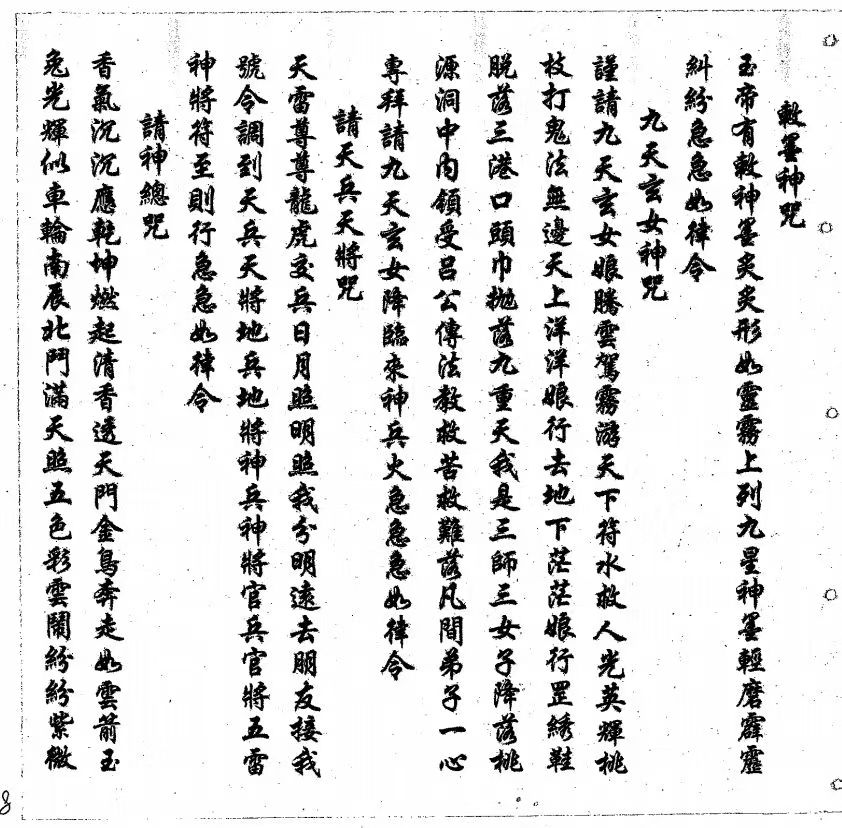 敕墨神咒
玉帝有敕神墨炙炙形如靈霧上列九星神墨輕磨霹靂
糾紛急急如律令
九天玄女神咒
謹請九天玄女娘騰雲駕霧游天下符水救人光英輝桃
枝打鬼法無邊天上洋洋娘行去地下茫茫娘行罡綉鞋
脫落三港口頭巾拋落九重天我是三師三女子降落桃
源洞中內領受呂公傳法教救苦救難落凡間弟子一心
專拜請九天玄女降臨來神兵火急急急如律令
請天兵天將咒
天雷尊尊龍虎交兵日月照明照我分明遠去朋友接我
號令調到天兵天將地兵地將神兵神將官兵官將五雷
神將符至則行急急如律令
請神總咒
香氣沉沉應乾坤燃起清香透天門金鳥奔走如雲箭玉
兔光輝似車輪南辰北鬥滿天照五色彩雲鬧紛紛紫微
8